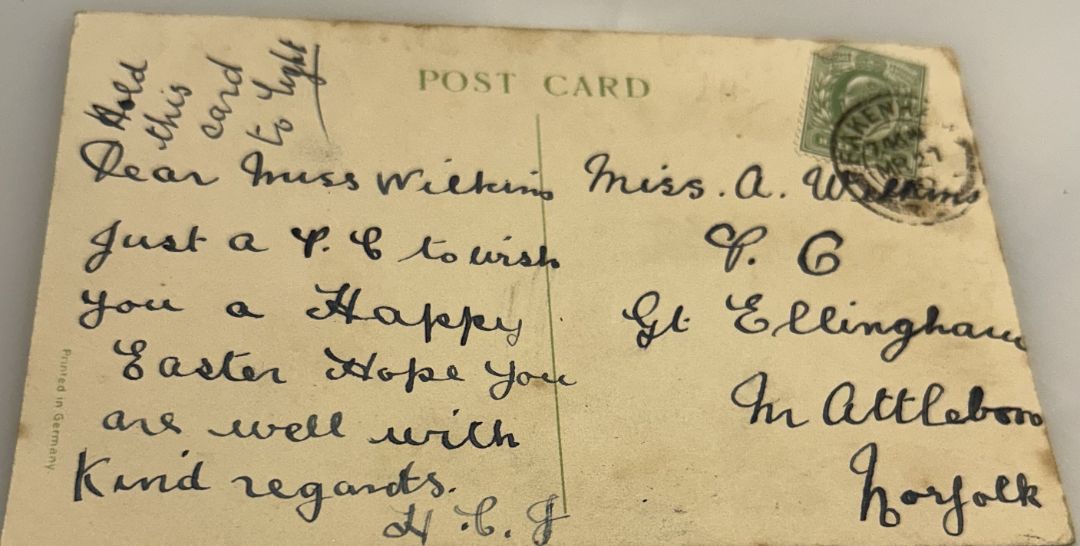 Hold
this
card
to light
POST CARD
Dear Miss Wilkins
Just a P. C to wish
you a Happy
Easter Hope you
are well with
Kind regards.
H. C. J
Miss. A. Wilkins
P. O
Gt Ellingham
Nr Attleboro
Norfolk
Printed in Germany
MR 27